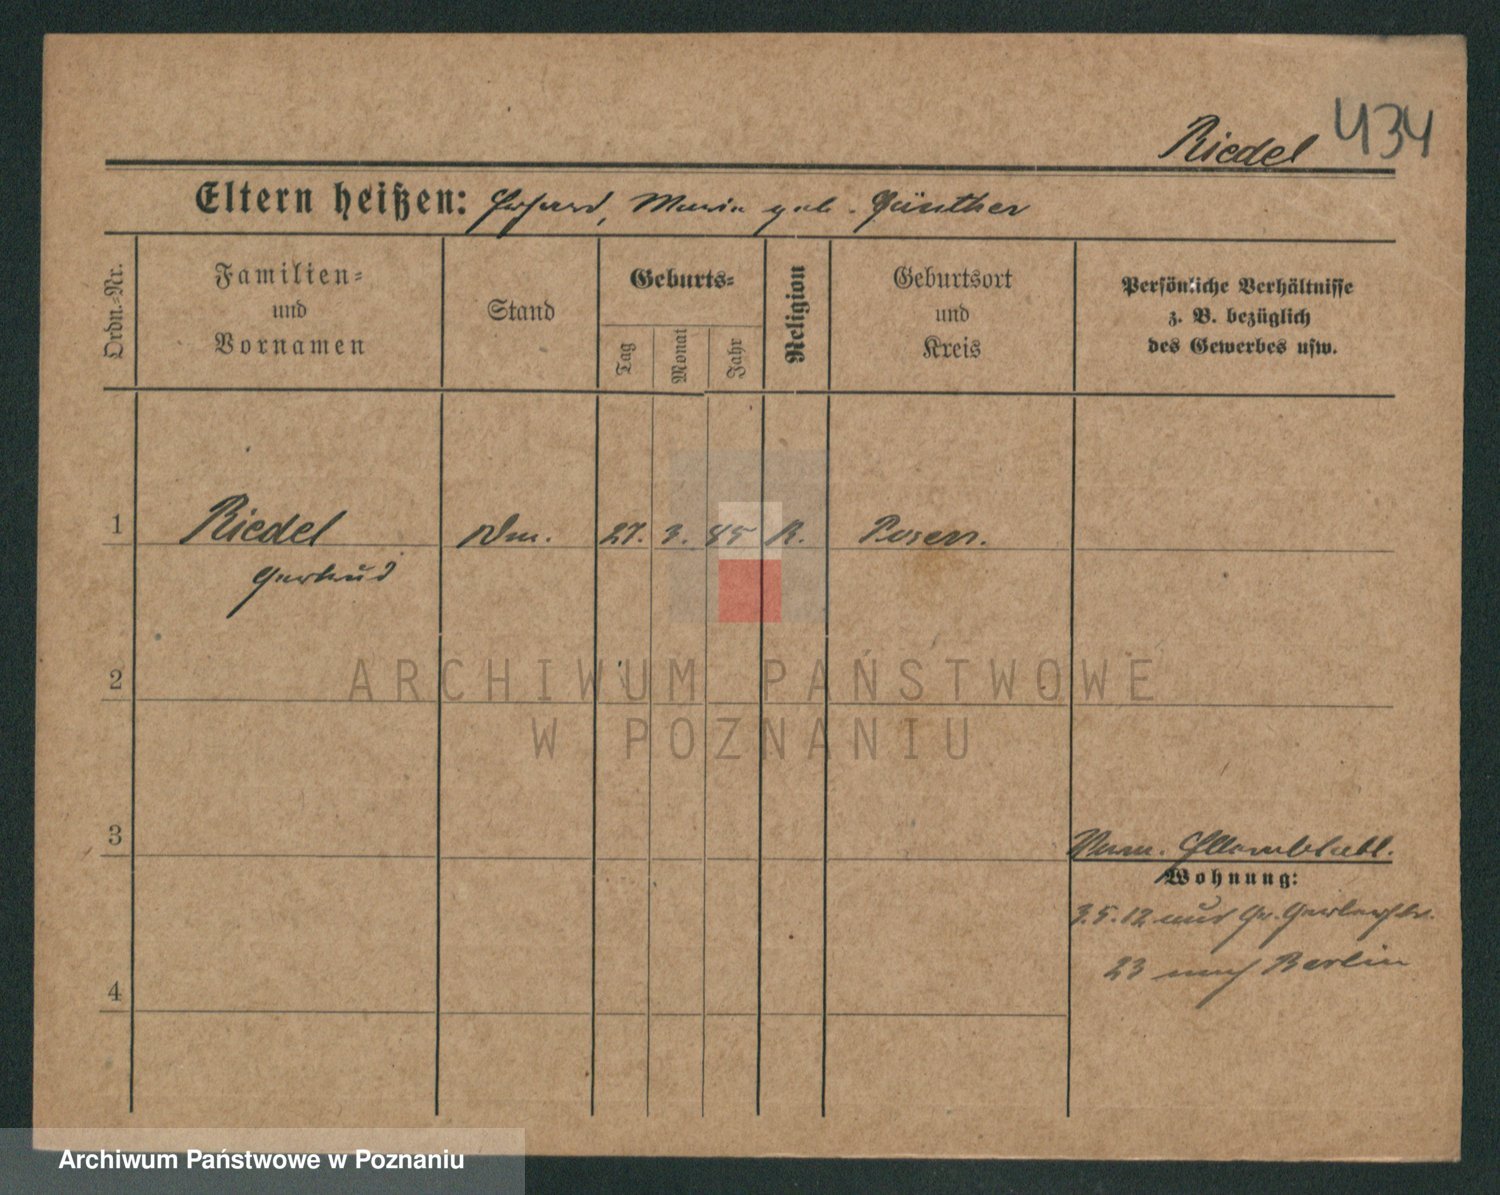 434
Riedel
Eltern heißen: Erhard, Maria geb. Günther
Ordn.-Nr.
Familien-
und
Vornamen
Stand
Geburts-
Tag
Monat
Jahr
Religion
Geburtsort
und
Kreis
Persönliche Verhältnisse
z. B. bezüglich
des Gewerbes usw.
1
Riedel
27. 3. 85 K. Posen.
Gertrud
2
ARCHIWUM PAŃSTWOWE
W POZNANIU
3
Wohnung:
3.5.12 aus Gr. Gerberstr.
23 nach Berlin
4
Archiwum Państwowe w Poznaniu